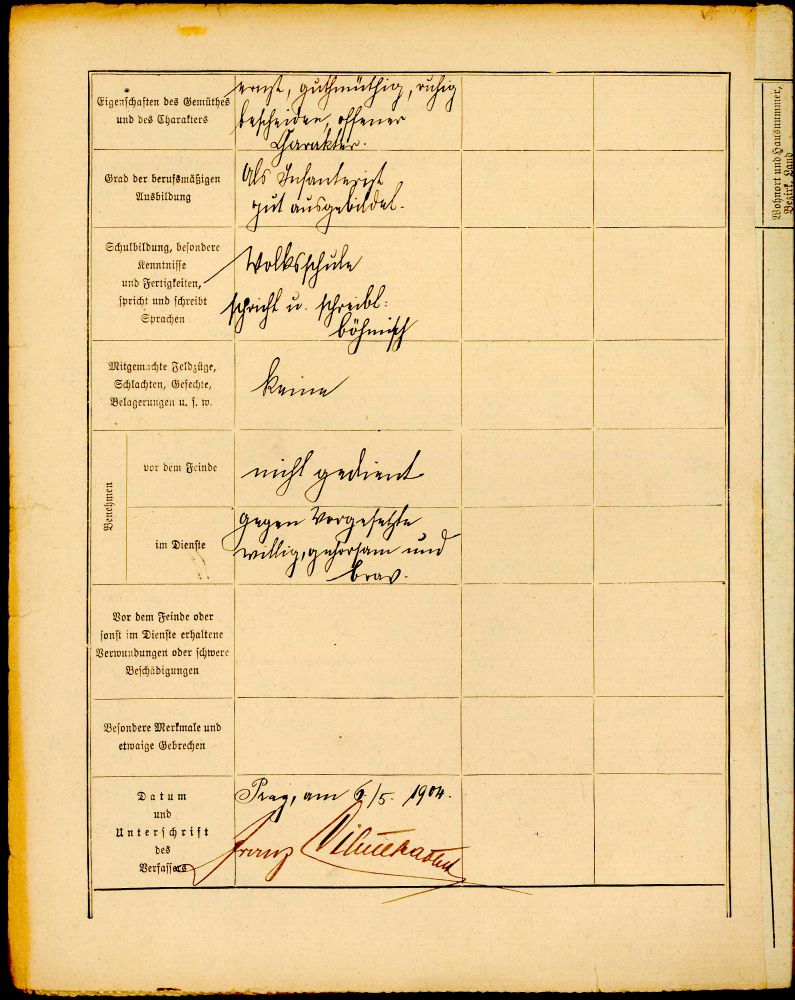 Eigenschaften des Gemüthes
und des Charakters
ernst, guthmüthig, ruhig
bescheiden, offener
Charakter.
Grad der berufsmäßigen
Ausbildung
Als Infanterist
gut ausgebildet.
Schulbildung, besondere
Kenntnisse
und Fertigkeiten,
spricht und schreibt
Sprachen
Volksschule
spricht u. schreibt
böhmisch
Mitgemachte Feldzüge,
Schlachten, Gefechte,
Belagerungen u. s. w.
keine
Benehmen
vor dem Feinde
nicht gedient
im Dienste
gegen Vorgesetzte
willig, gehorsam und
brav.
Vor dem Feinde oder
sonst im Dienste erhaltene
Verwundungen oder schwere
Beschädigungen
Besondere Merkmale und
etwaige Gebrechen
Datum
und
Unterschrift
des
Verfassers
Prag, am 6./5. 1904.
Franz
Wohnort und Hausnummer,
Bezirk, Land